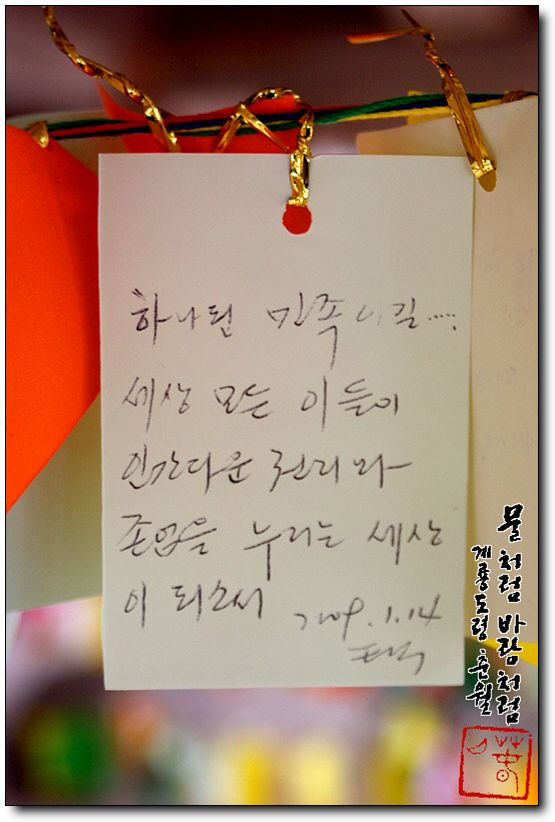 하나된 민족이길....
세상 모든 이들이
인간다운 권리와
존엄을 누리는 세상
이 되소서 2009.1.14
물처럼 바람처럼
계룡도령 춘월